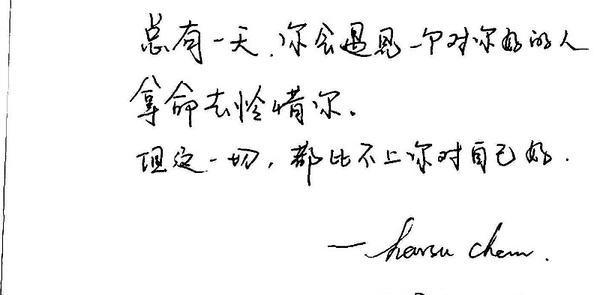 总有一天,你会遇见一个对你好的人
拿命去怜惜你。
但这一切,都比不上你对自己好.